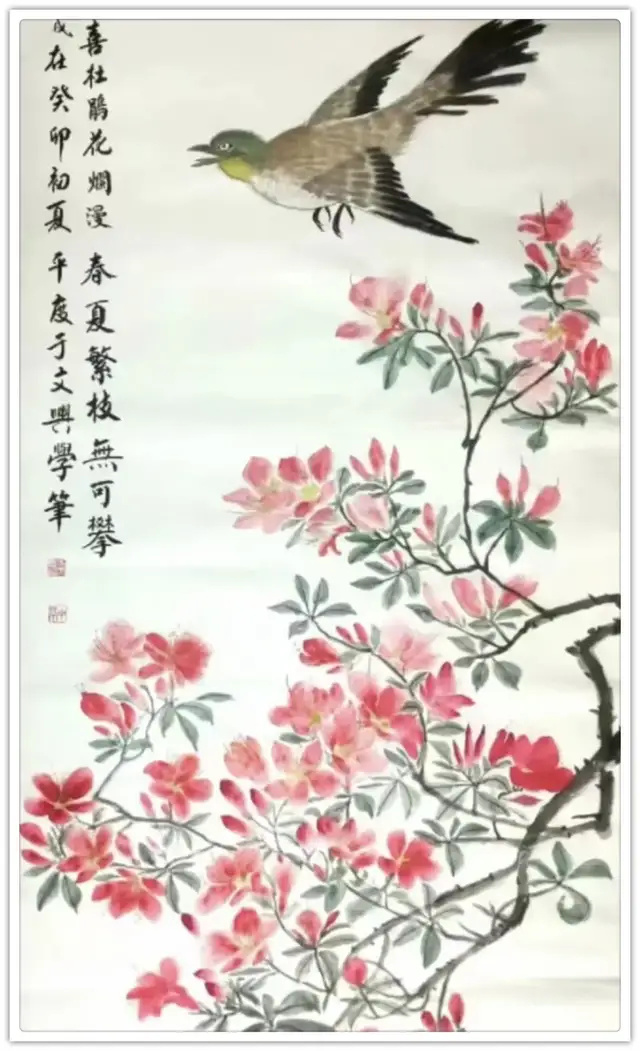 喜杜鹃花爛漫春夏繁枝無可攀
在癸卯初夏平度于文興學筆